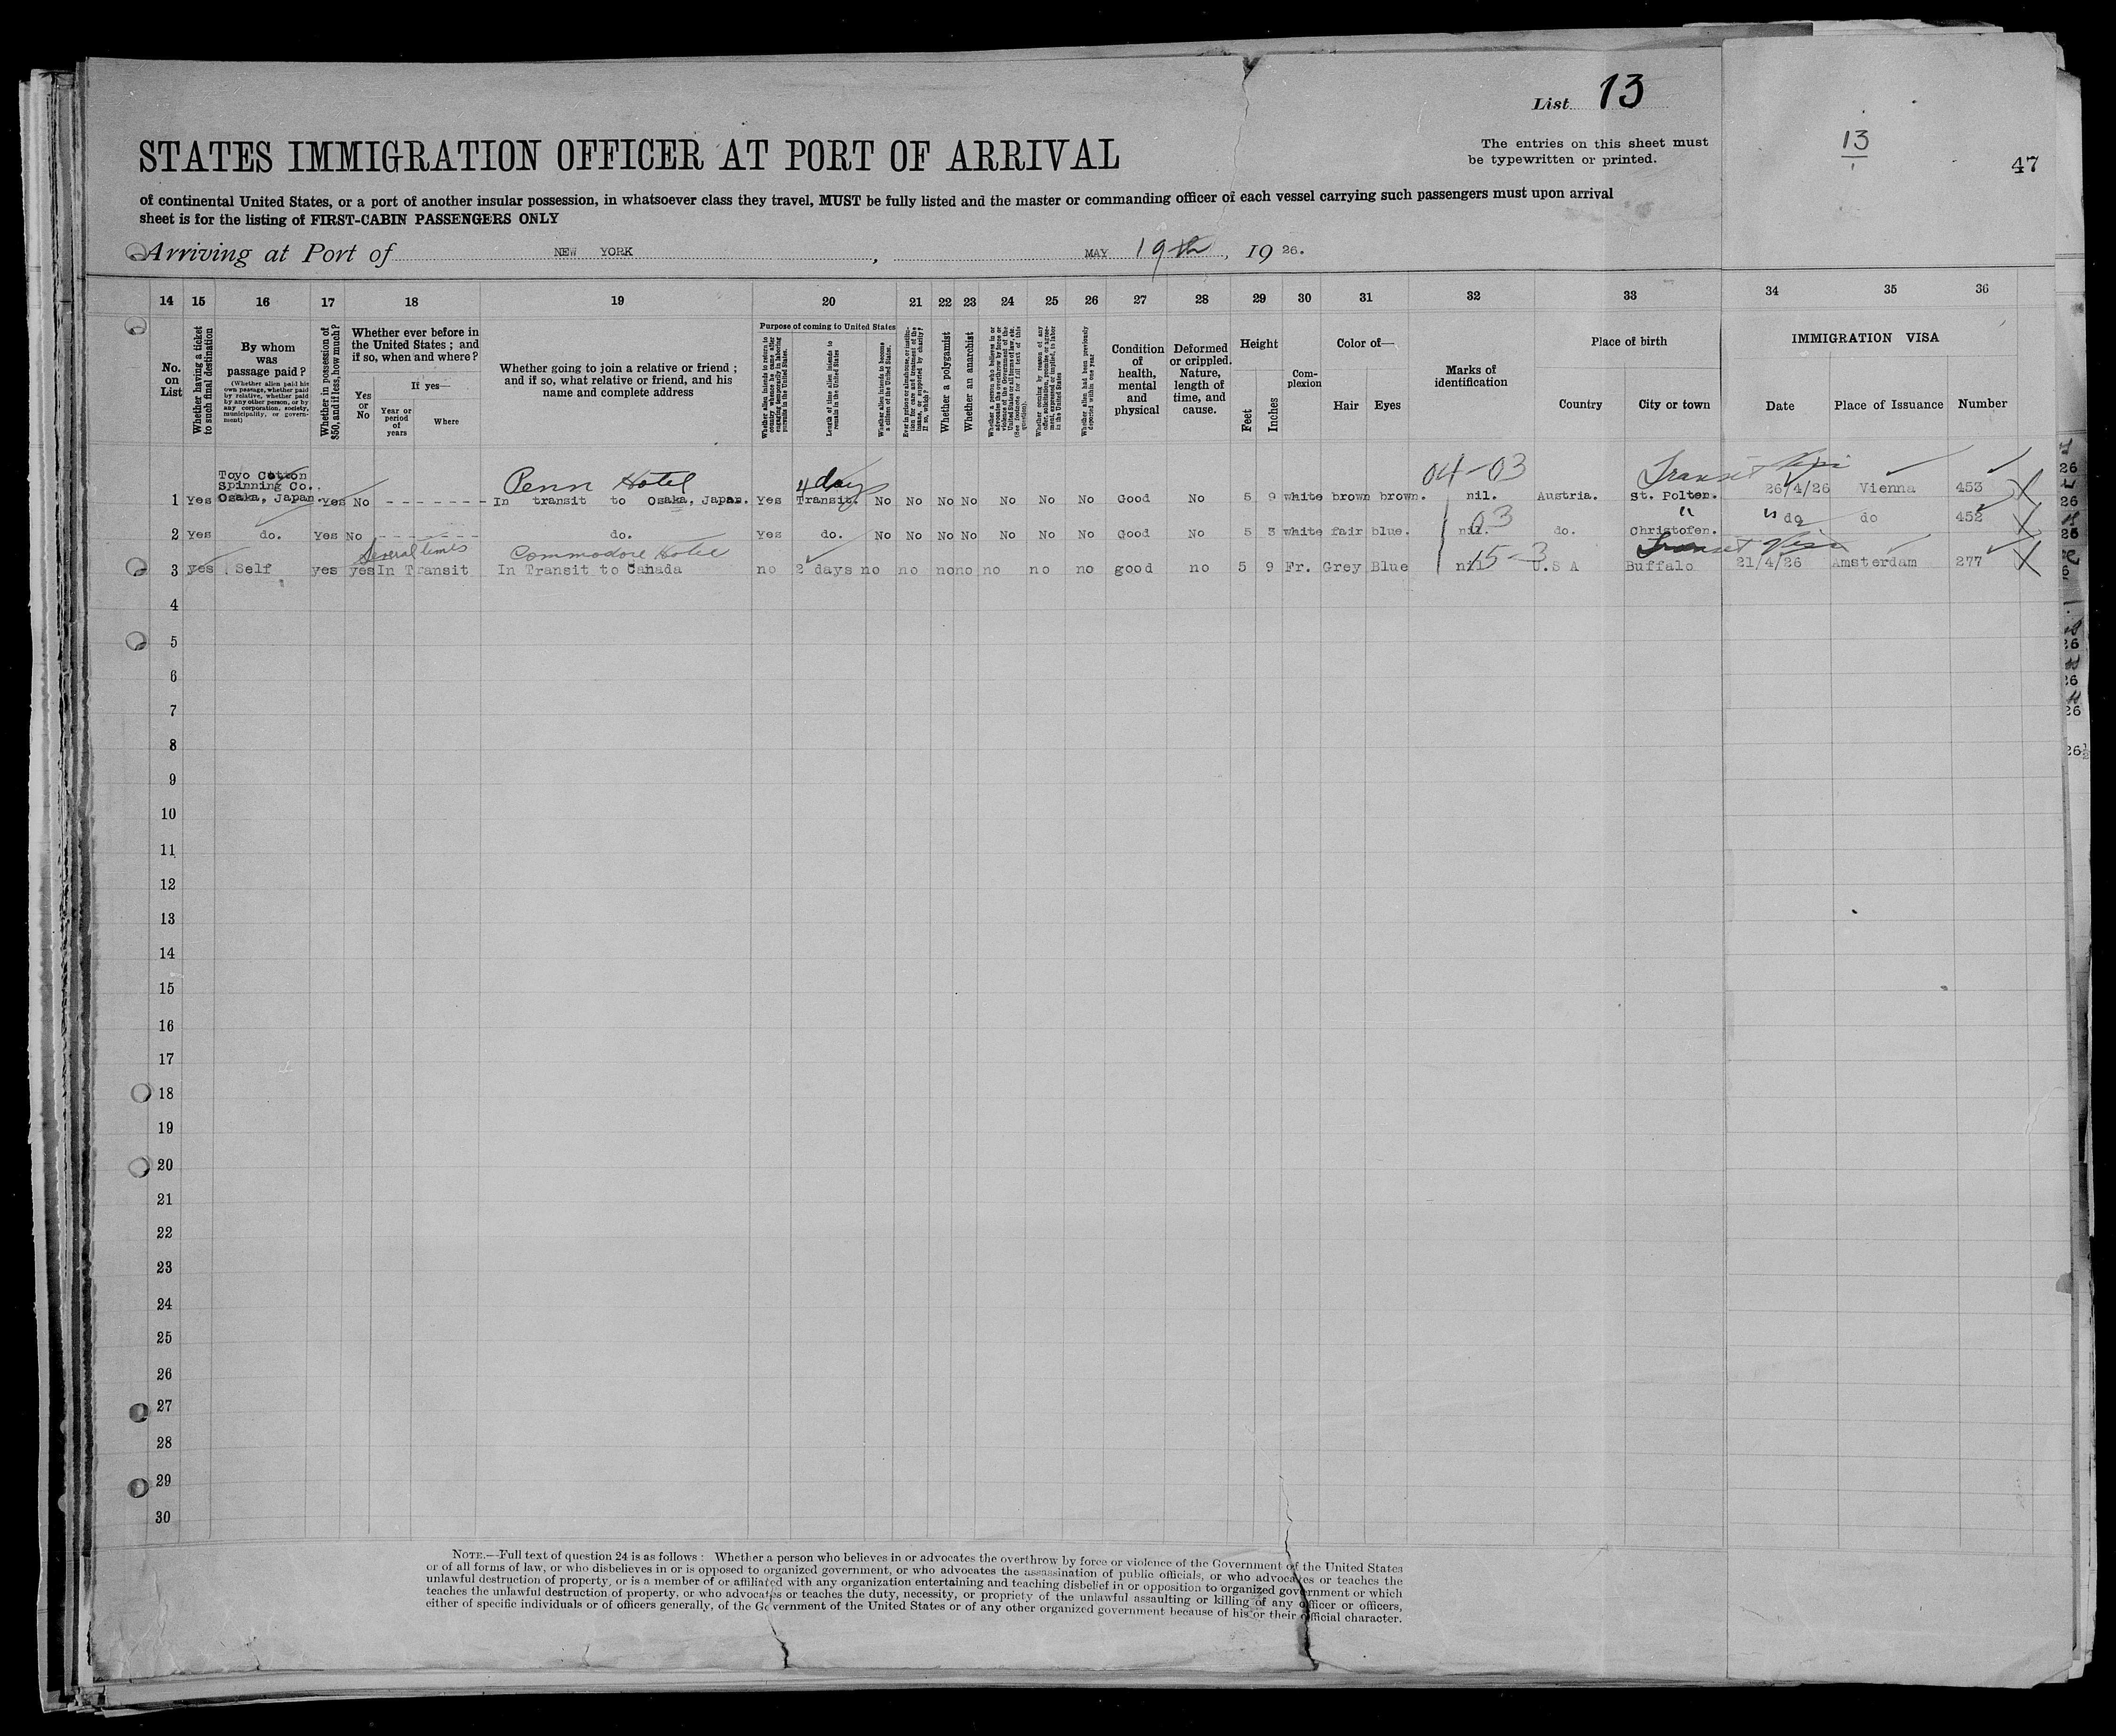 List 13
The entries on this sheet must
be typewritten or printed.
13
47
STATES IMMIGRATION OFFICER AT PORT OF ARRIVAL
of continental United States, or a port of another insular possession, in whatsoever class they travel, MUST be fully listed and the master or commanding officer of each vessel carrying such passengers must upon arrival
sheet is for the listing of FIRST-CABIN PASSENGERS ONLY
Arriving at Port of NEW YORK, MAY 19th, 1926.
14 15 16 17 18 19 20 21 22 23 24 25 26 27 28 29 30 31 32 33 34 35 36
No. on List
Whether having a ticket to such final destination
By whom was passage paid?
(Whether alien paid his own passage, whether paid by relative, whether paid by any other person, or by any corporation, society, municipality, or government)
Whether in possession of $50, and if less, how much?
Whether ever before in the United States; and if so, when and where?
Yes or No
If yes—
Year or period of years
Where
Whether going to join a relative or friend; and if so, what relative or friend, and his name and complete address
Purpose of coming to United States
Whether alien intends to return to country whence he came after engaging temporarily in laboring pursuits in the United States.
Length of time alien intends to remain in the United States
Whether alien intends to become a citizen of the United States.
Ever in prison or almshouse, or institution for care and treatment of the insane, or supported by charity? If so, which?
Whether a polygamist
Whether an anarchist
Whether a person who believes in or advocates the overthrow by force or violence of the Government of the United States or all forms of law, etc. (See footnote for full text of this question).
Whether coming by reason of any offer, solicitation, promise or agreement, expressed or implied, to labor in the United States
Whether alien had been previously deported within one year
Condition of health, mental and physical
Deformed or crippled. Nature, length of time, and cause.
Height
Feet
Inches
Complexion
Color of—
Hair
Eyes
Marks of identification
Place of birth
Country
City or town
IMMIGRATION VISA
Date
Place of Issuance
Number
Toyo Cotton
Spinning Co.
Penn Hotel 4 days 04-03 Transit Visa
1 Yes Osaka, Japan. Yes No - - - - - - - - In transit to Osaka, Japan. Yes Transit. No No No No No No No Good No 5 9 white brown brown. nil. Austria. St. Polten. 26/4/26 Vienna 453
03 " "
2 Yes do. Yes No - - - - - - - - do. Yes do. No No No No No No No Good No 5 3 white fair blue. nil. do. Christofen. do do 452
Several times Commodore Hotel 15-3 Transit Visa
3 yes Self yes yes In Transit In Transit to Canada no 2 days no no no no no no no good no 5 9 Fr. Grey Blue nil U.S A Buffalo 21/4/26 Amsterdam 277
4
5
6
7
8
9
10
11
12
13
14
15
16
17
18
19
20
21
22
23
24
25
26
27
28
29
30
NOTE.—Full text of question 24 is as follows: Whether a person who believes in or advocates the overthrow by force or violence of the Government of the United States
or of all forms of law, or who disbelieves in or is opposed to organized government, or who advocates the assassination of public officials, or who advocates or teaches the
unlawful destruction of property, or is a member of or affiliated with any organization entertaining and teaching disbelief in or opposition to organized government or which
teaches the unlawful destruction of property, or who advocates or teaches the duty, necessity, or propriety of the unlawful assaulting or killing of any officer or officers,
either of specific individuals or of officers generally, of the Government of the United States or of any other organized government because of his or their official character.